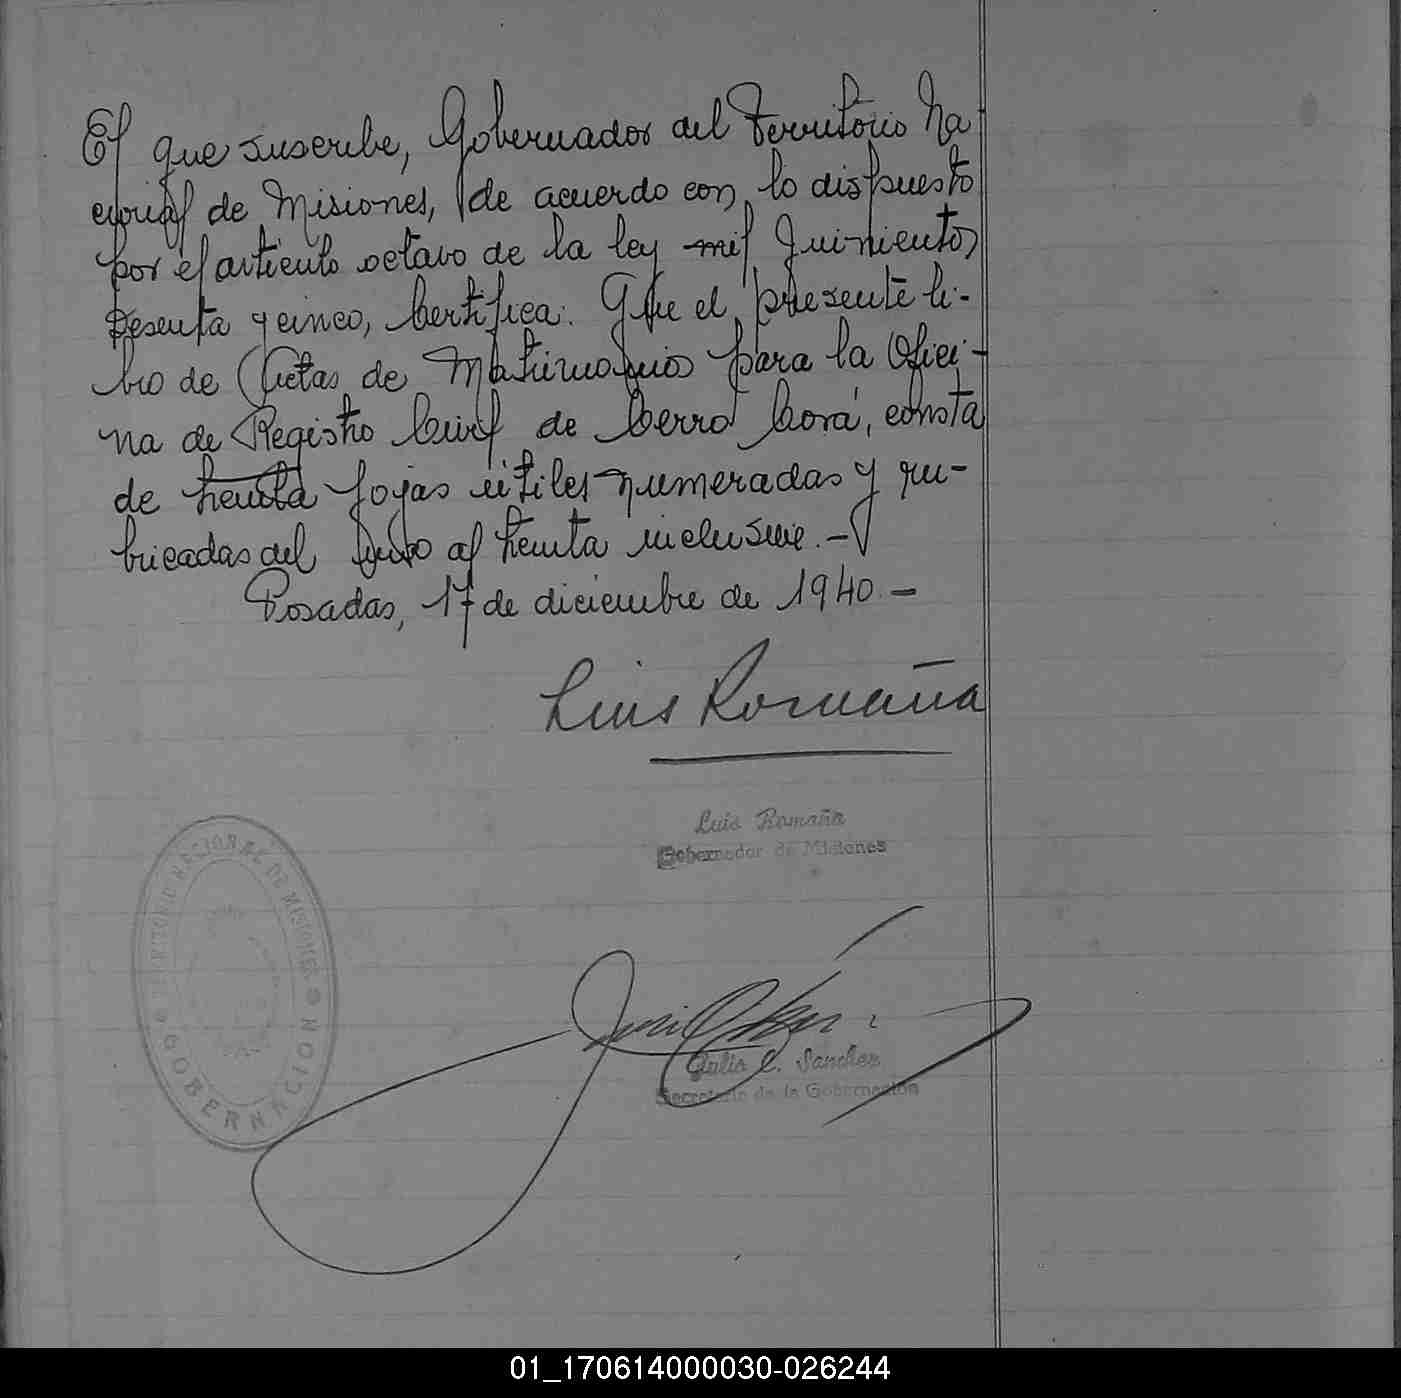 El que suscribe, Gobernador del Territorio Na-
cional de Misiones, de acuerdo con lo dispuesto
por el artículo octavo de la ley mil quinientos
sesenta y cinco, Certifica: Que el presente li-
bro de Actas de Matrimonios para la Ofici-
na de Registro Civil de Cerro Corá, consta
de treinta fojas útiles numeradas y ru-
bricadas del uno al treinta inclusive.-
Posadas, 17 de diciembre de 1940.-
Luis Romaña
Luis Romaña
Gobernador de Misiones
TERRITORIO NACIONAL DE MISIONES
GOBERNACION
Julio C. Sanchez
Secretario de la Gobernación
01_170614000030-026244